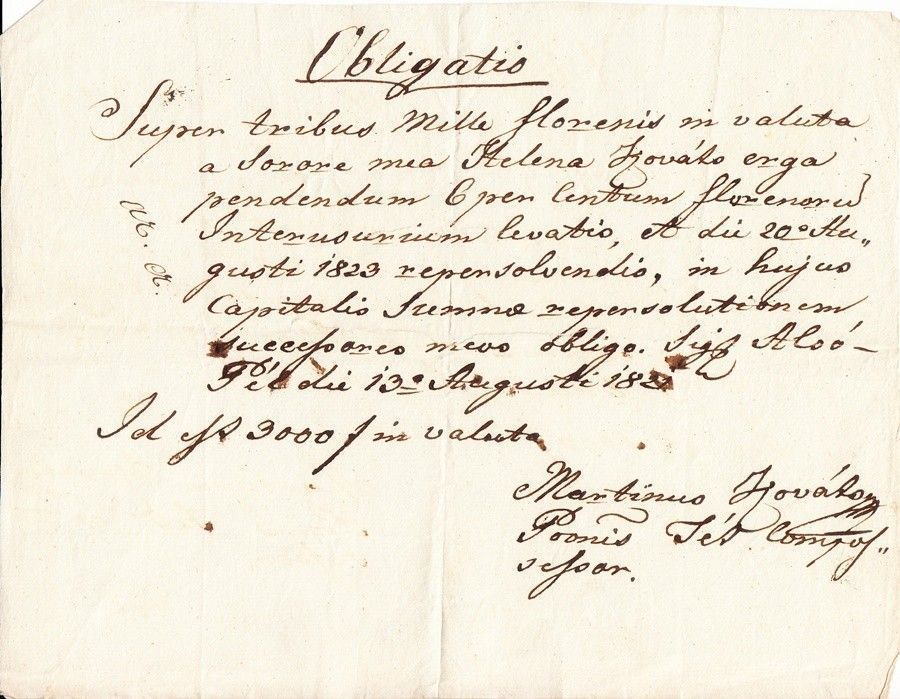 Obligatio
Super tribus Mille florenis in valuta
a Sorore mea Helena Kováts erga
pendendum 6 per Centum florenorū
Interusurium levatis, et die 20a Au„
gusti 1823 repersolvendis, in hujus
Capitalis Summæ repersolutionem
successores meos obligo. Sig Alsó-
Pél die 13a Augusti
Id est 3000 f in valuta
Martinus Kováts
Possnis Pél Compos„
sessor.